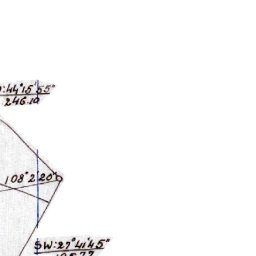 :44°15'55"
246.19
108°2'20"
SW:27°41'45"